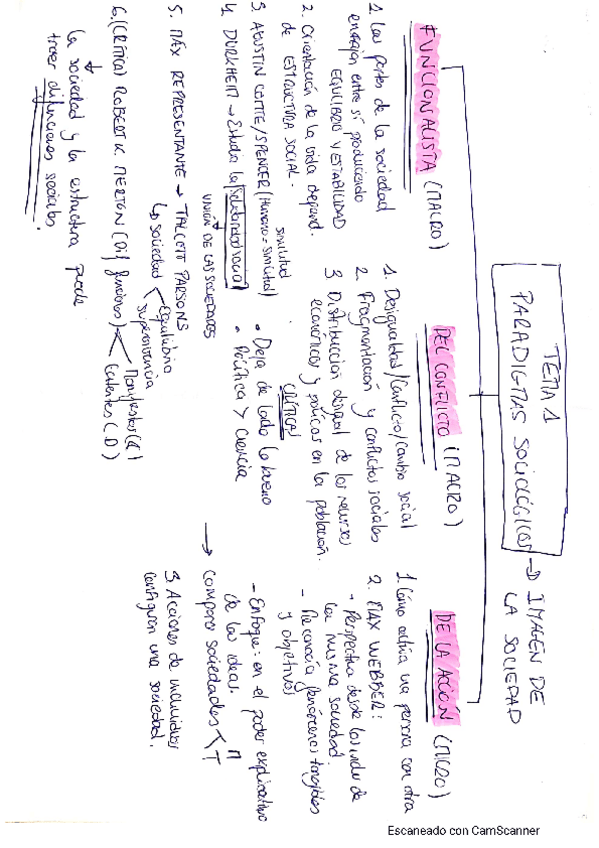 TEMA 1
PARADIGMAS SOCIOLÓGICOS → IMAGEN DE
LA SOCIEDAD
FUNCIONALISTA (MACRO)
1. Las partes de la sociedad
encajan entre sí produciendo
EQUILIBRIO Y ESTABILIDAD
2. Orientación de la vida depend.
de ESTRUCTURA SOCIAL.
3. AGUSTIN COMTE/SPENCER (Humano = similitud)
similitud
4. DURKHEIM → Estudia la solidaridad social
UNIÓN DE LAS SOCIEDADES
5. MÁX REPRESENTANTE → TALCOTT PARSONS
↳ sociedad < Equilibrio
supervivencia
6. (CRÍTICA) ROBERT K. MERTON (Dif. funciones) < Manifiestas (C)
Latentes (D)
La sociedad y la estructura puede
traer disfunciones sociales.
DEL CONFLICTO (MACRO)
1. Desigualdades/Conflicto/cambio social
2. Fragmentación y conflictos sociales
3 Distribución desigual de los recursos
económicos y políticos en la población.
CRÍTICAS
• Deja de lado lo bueno
• Política > ciencia
DE LA ACCIÓN (MICRO)
1. Cómo actúa una persona con otra
2. MAX WEBBER:
- Perspectiva desde los indv de
la misma sociedad.
- Reconocía fenómenos tangibles
y objetivos
- Enfoque: en el poder explicativo
de las ideas.
→ Comparó sociedades < M
T
3. Acciones de individuos
configuran una sociedad.
Escaneado con CamScanner